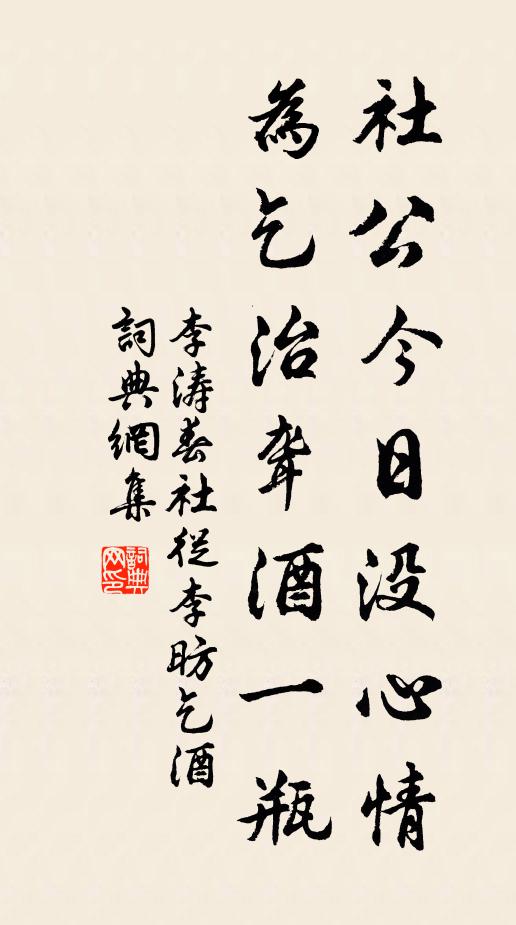 社公今日没心情
為乞治聾酒一瓶
李濤春社從李昉乞酒
詞典網集
詞典網印